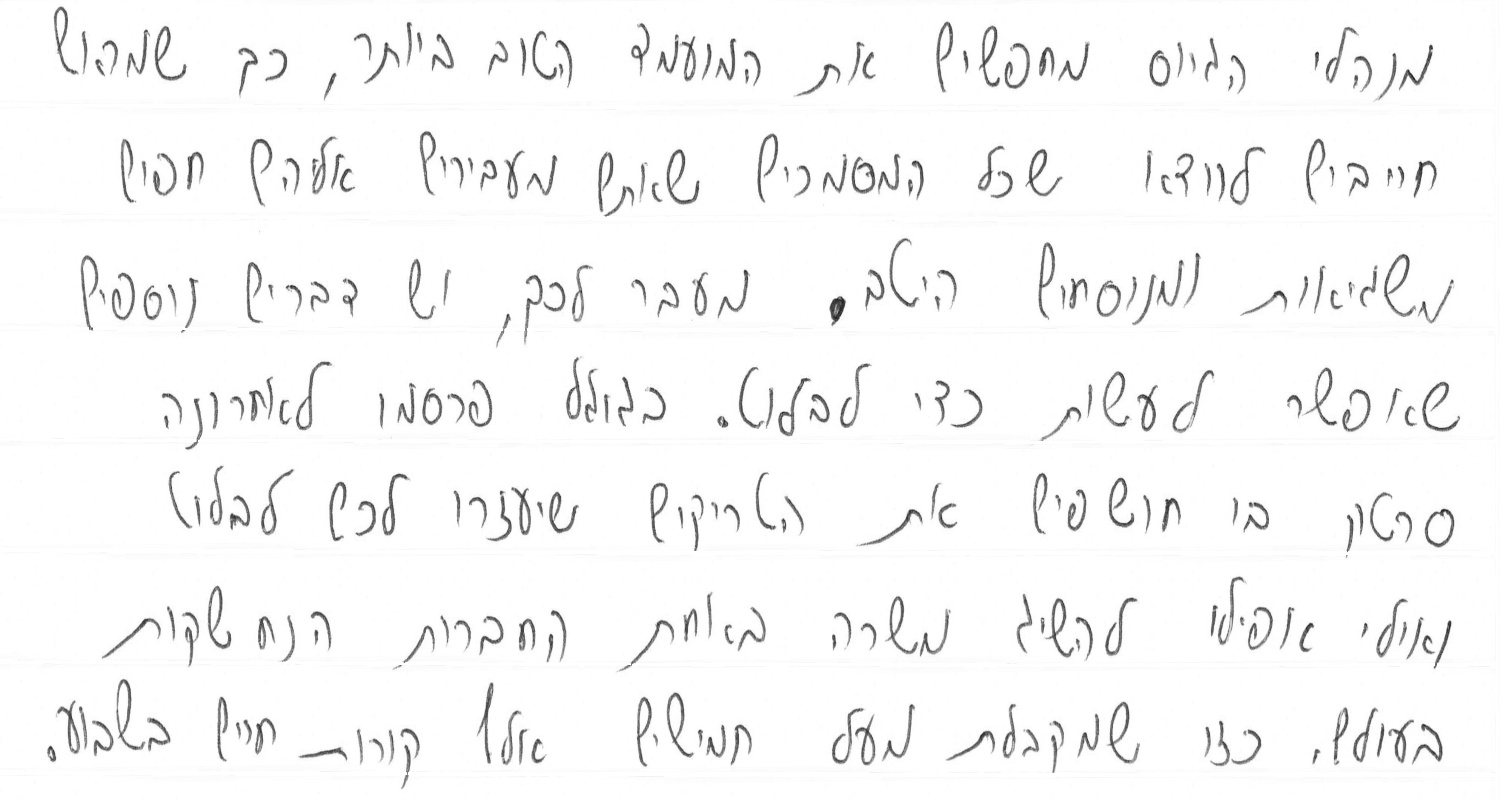 מנהלי הגיוס מחפשים את המועמד הטוב ביותר, כך שמהוש
חייבים לוודאו שכל המסמכים שאותם מעבירים אליהם חפים
משגיאות ומנוסחים היטב. מעבר לכך, יש דברים נוספים
שאפשר לעשות כדי לבלוט. בגוגל פרסמו לאחרונה
סרטון בו חושפים את הטריקים שיעזרו לכם לבלוט
ואולי אפילו להשיג משרה באחת החברות הנחשקות
בעולם. כזו שמקבלת מעל חמישים אלף קורות חיים בשבוע.